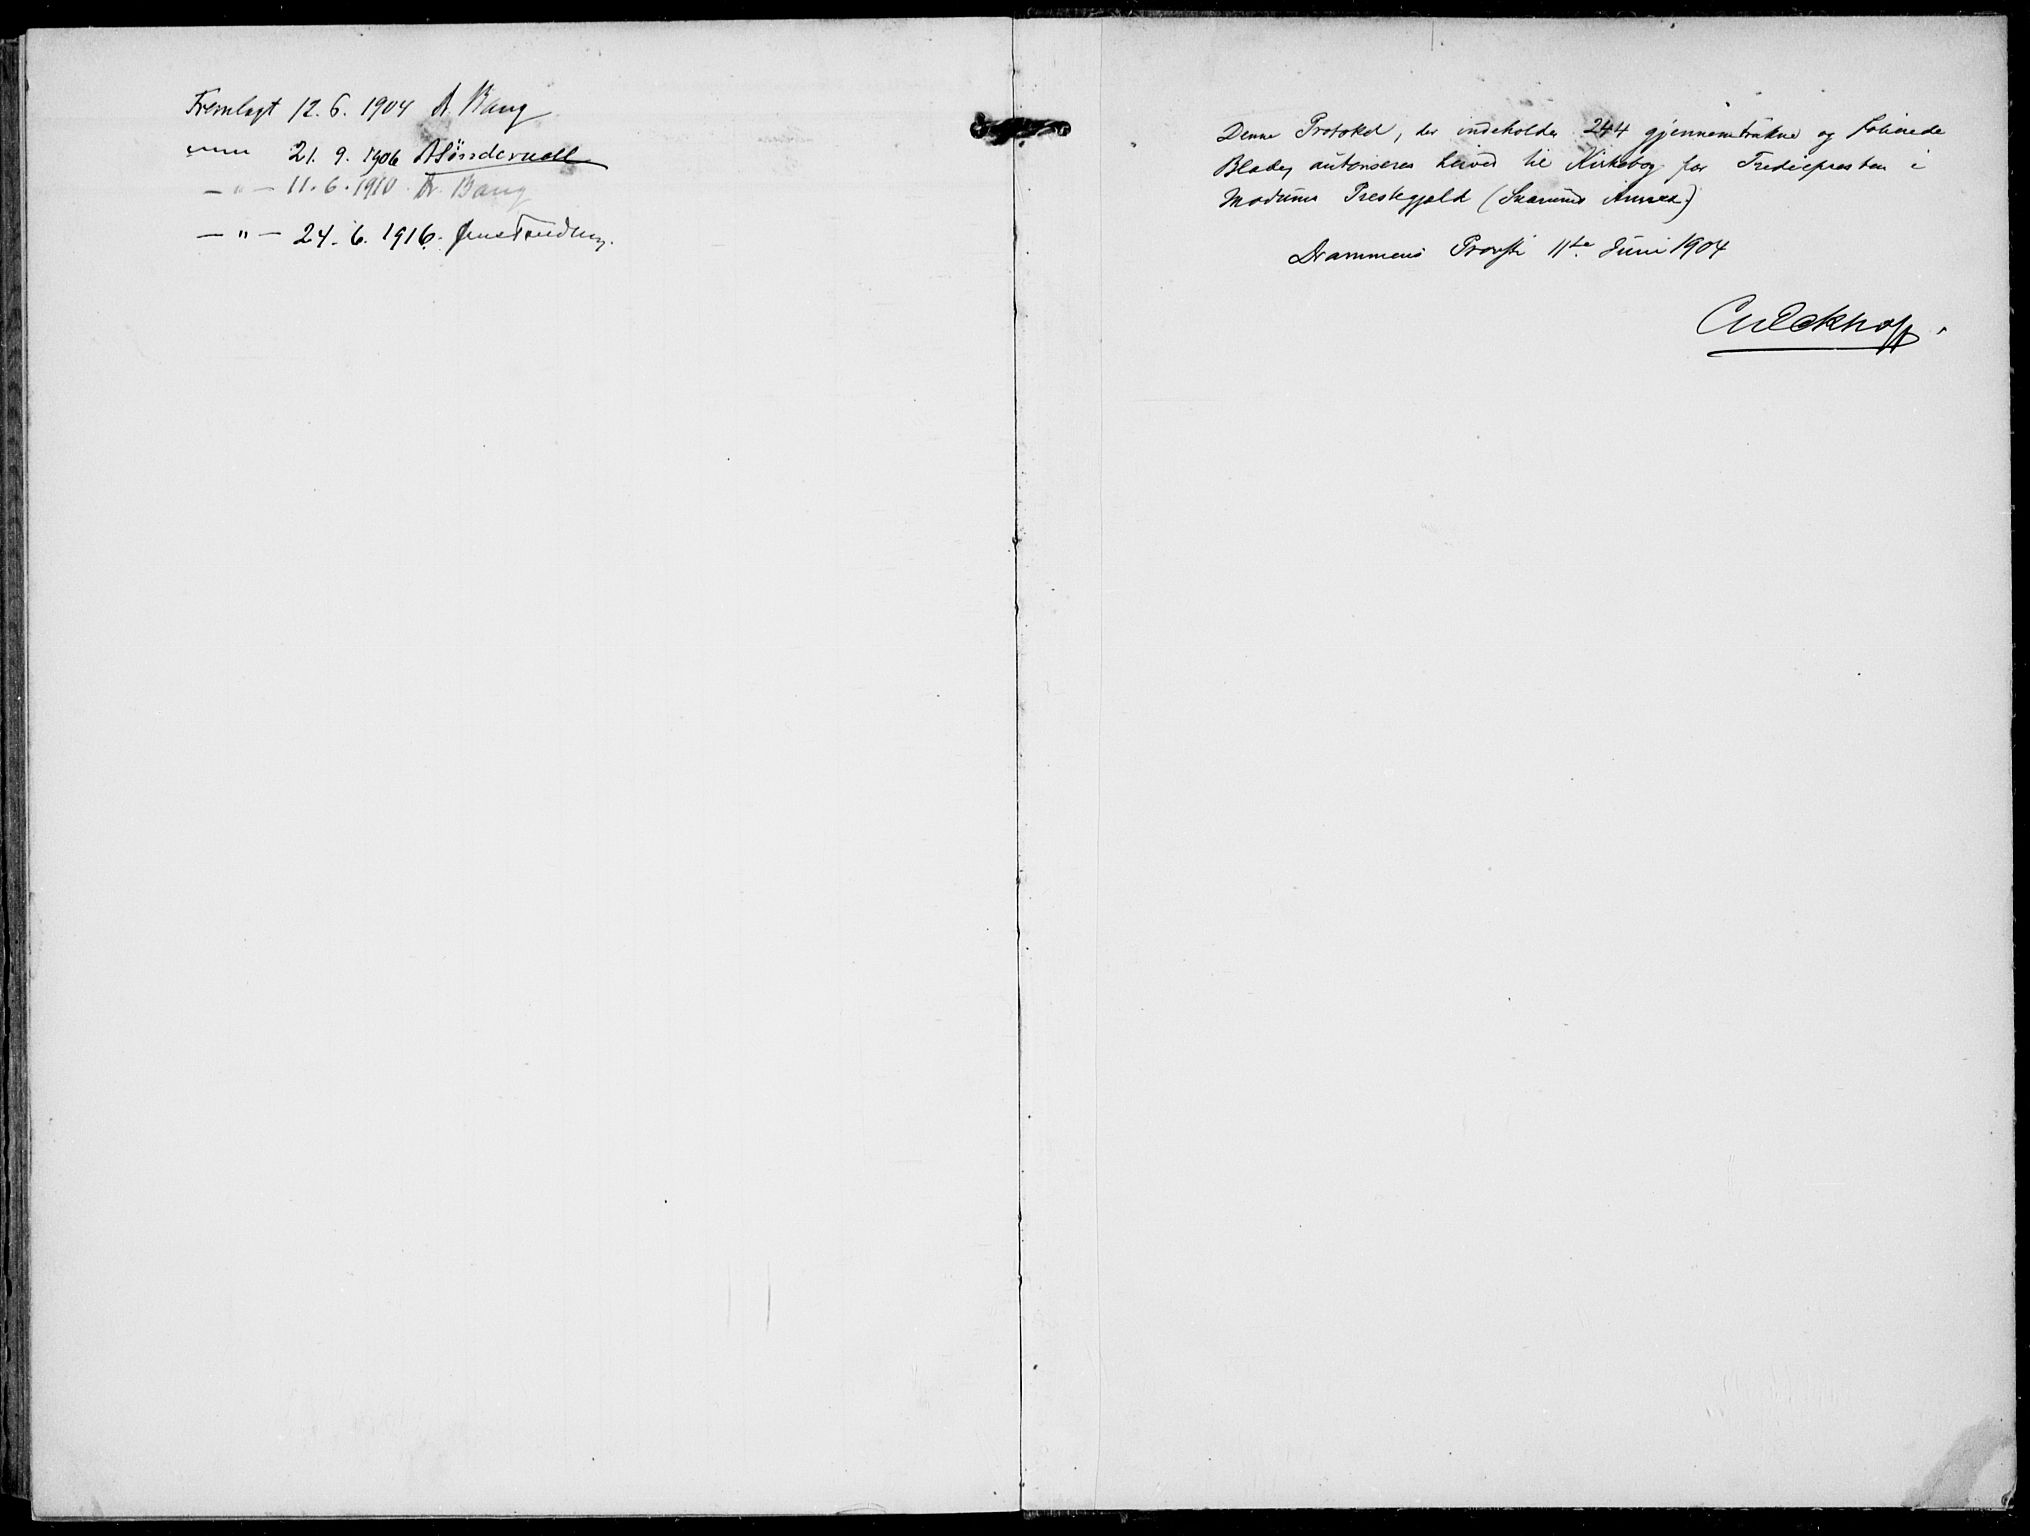 Fremlagt 12. 6. 1904 A. Bang
21. 9. 1906 A Söndervall
— " — 11. 6. 1910. A. Bang
— " — 24. 6. 1916. Jens
Denne Protokol, der indeholder 244 gjennemtrukne og folierede
Blade, autoriseres herved til Kirkebog for Tredieprsten i
Modums Prestegjæld (Snarums Annex.)
Drammens Provsti 11te Juni 1904
Eckhoff.